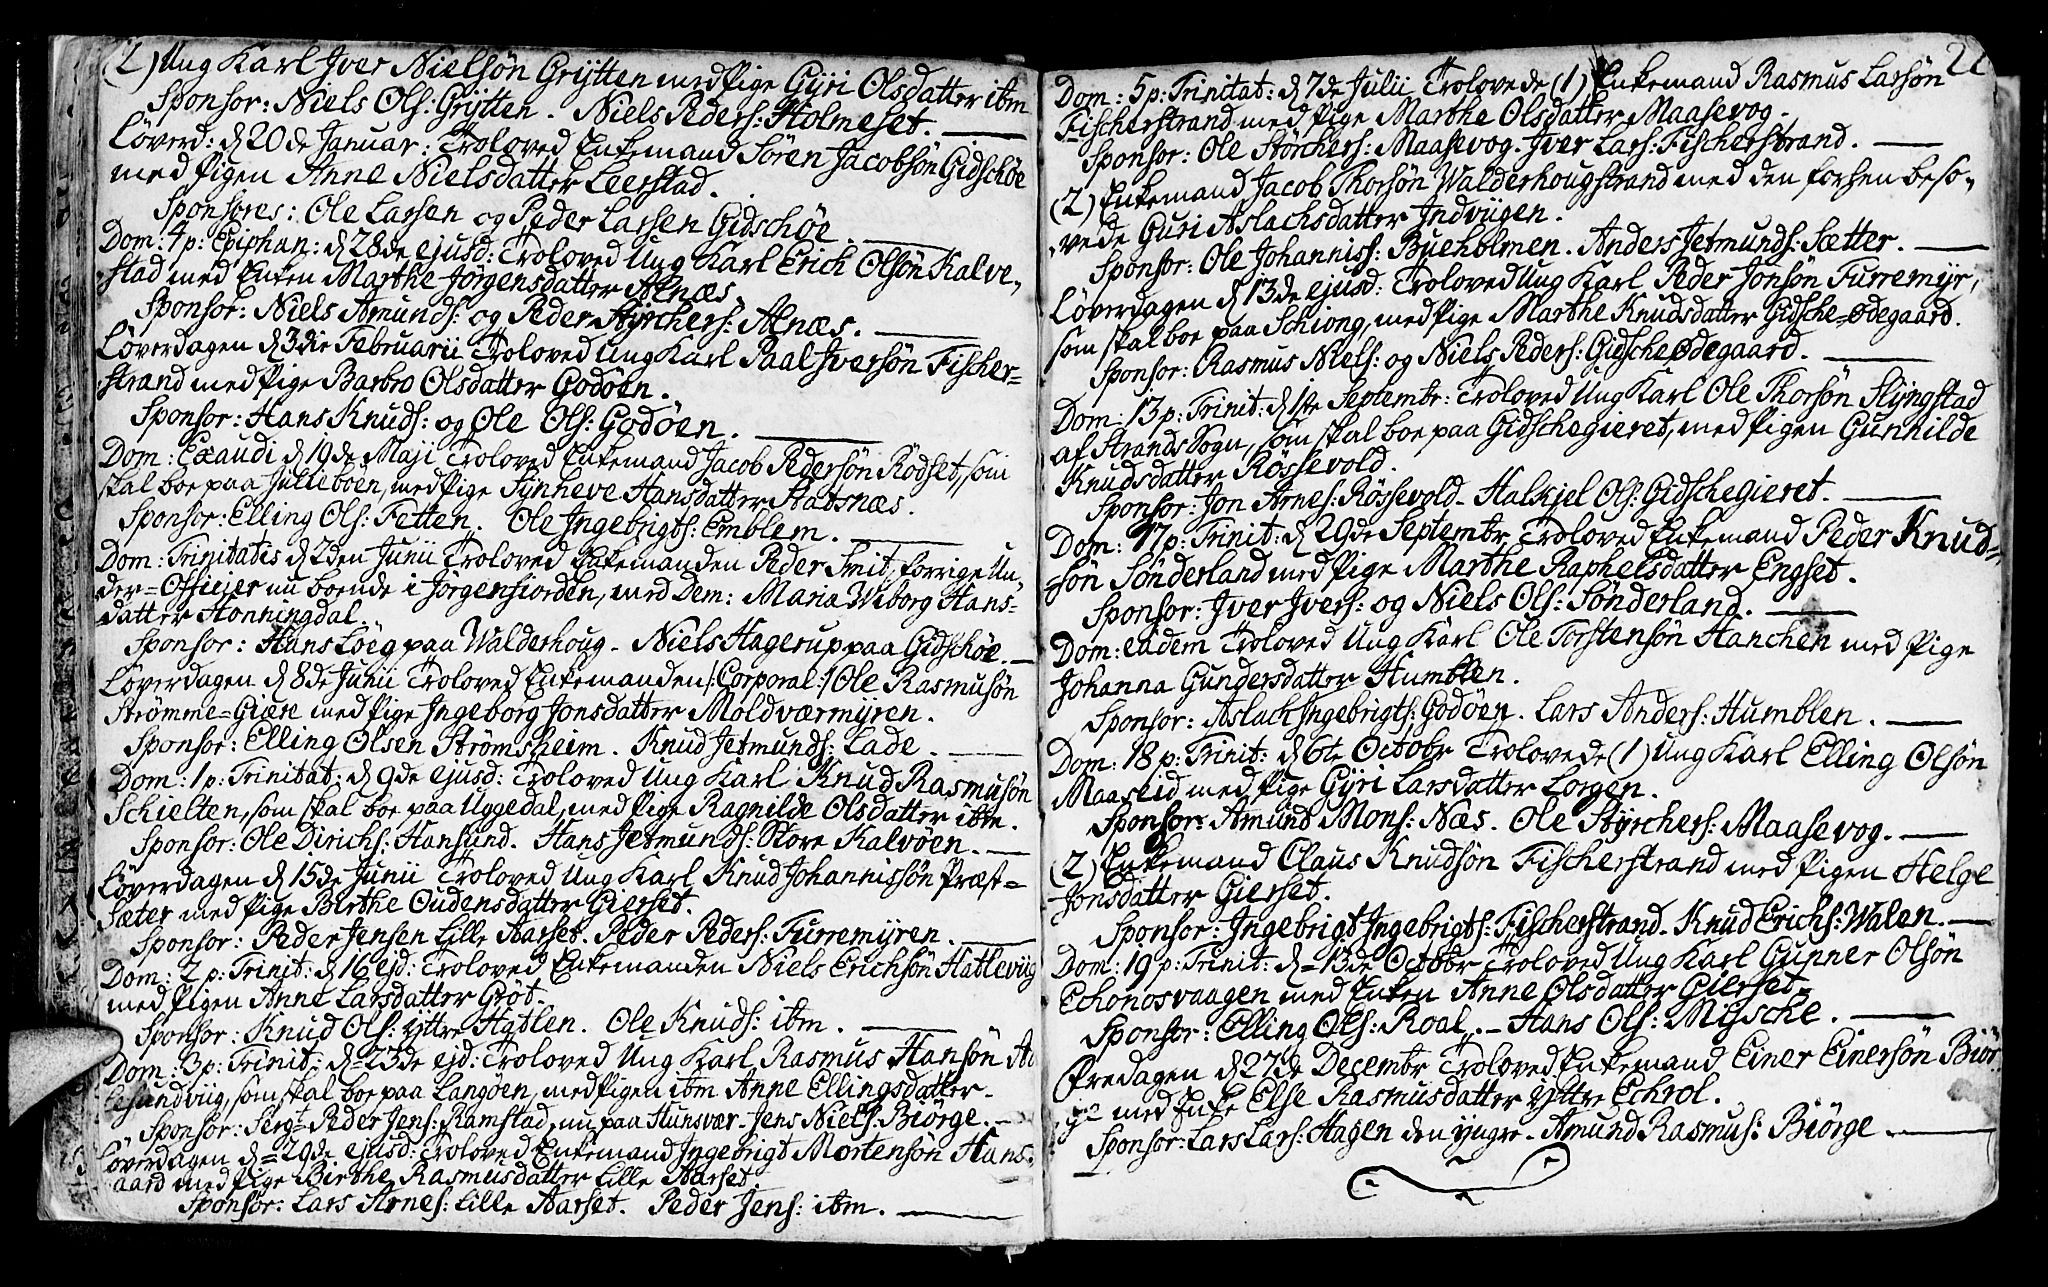 (2) Ung Karl Iver Nielsøn Grytten med Pige Gyri Olsdatter ibm
Sponsor: Niels Ols: Grytten. Niels Peders: Holmeset.
Løverd: d 20de Januar: Troloved Enkemand Søren Jacobsøn Gidschøe
med Pigen Anne Nielsdatter Leerstad.
Sponsores: Ole Larsen og Peder Larsen Gidschøe.
Dom: 4 p: Epiphan: d 28de ejusd: Troloved Ung Karl Erich Olsøn Kalve,
stad med Enken Marthe Jørgensdatter Alnæs
Sponsor: Niels Amunds: og Peder Styrchers: Alnæs.
Løverdagen d 3die Februarii Troloved Ung Karl Paal Iversøn Fischer=
strand med Pige Barbro Olsdatter Godøen.
Sponsor: Hans Knuds: og Ole Ols: Godøen.
Dom: Exaudi d 19de Maji Troloved Enkemand Jacob Pedersøn Rødset, som
skal boe paa Juliebøen, med Pige Synneve Hansdatter Aatsnæs.
Sponsor: Elling Ols: Fetten. Ole Ingebrigts: Emblem.
Dom: Trinitatis d 2den Junii Troloved Enkemanden Peder Smit, forrige Un,
der=Officier nu boende i Jørgenfiorden, med Dem: Maria Wiborg Hans=
datter Honningdal.
Sponsor: Hans Løeg paa Walderhoug. Niels Hagerup paa Gidschøe.
Løverdagen d 8de Junii Troloved Enkemanden /: Corporal :/ Ole Rasmusøn
Strømme=Giære med Pige Ingeborg Jonsdatter Moldværmyren.
Sponsor: Elling Olsen Strømsheim. Knud Jetmunds: Lade.
Dom: 1 p: Trinitat: d 9de ejusd: Troloved Ung Karl Knud Rasmusøn
Schielten, som skal boe paa Uggedal, med Pige Ragnilde Olsdatter ibm.
Sponsor: Ole Dirichs: Hansund. Hans Jetmunds: Store Kalvøen.
Løverdagen d 15de Junii Troloved Ung Karl Knud Johannissøn Præst=
Sæter med Pige Birthe Oudensdatter Gierset.
Sponsor: Peder Jensen Lille Aarset. Peder Peders: Furremyren.
Dom: 2 p: Trinit: d 16 ejd: Troloved Enkemanden Niels Erichsøn Hatleviig
med Pigen Anne Larsdatter Grøt.
Sponsor: Knud Ols: Yttre Hatlen. Ole Knuds: ibm.
Dom: 3 p: Trinit: d 23de ejd: Troloved Ung Karl Rasmus Hansøn
lesundviig, som skal boe paa Langøen, med Pigen ibm Anne Ellingsdatter.
Sponsor: Sergt Peder Jens: Ramstad, nu paa Hunsvær. Jens Niels: Biørge.
Løverdagen d 29de ejusd: Troloved Enkemand Ingebrigt Mortensøn Hans,
aard med Pige Birthe Rasmusdatter Lille Aarset.
Sponsor: Lars Arnes: Lille Aarset. Peder Jens: ibm.
Dom: 5 p: Trinitat: d 7de Julii Trolovede (1) Enkemand Rasmus Larsøn
Fischerstrand med Pige Marthe Olsdatter Maasevog.
Sponsor: Ole Størchers: Maasevog. Iver Lars: Fischerstrand.
(2) Enkemand Jacob Thorsøn Walderhougstrand med den forhen beso,
vede Guri Aslachsdatter Indviigen.
Sponsor: Ole Johanniss: Bueholmen. Anders Jetmunds: Sætter.
Løverdagen d 13de ejusd: Troloved Ung Karl Peder Jonsøn Furremyr,
som skal boe paa Schiong, med Pige Marthe Knudsdatter Gidsche=Ødegaard.
Sponsor: Rasmus Niels: og Niels Peders: Gidscheødegaard.
Dom: 13 p: Trinit: d 1ste Septembr: Troloved Ung Karl Ole Thorsøn Slyngstad
af Strands Sogn, som skal boe paa Gidschegieret, med Pigen Gunhilde
Knudsdatter Røssevold.
Sponsor: Jon Arnes: Røssevold. Halkjel Ols: Gidschegieret.
Dom: 17 p: Trinit: d 29de Septembr Troloved Enkemand Peder Knud=
søn Sønderland med Pige Marthe Raphelsdatter Engset.
Sponsor: Iver Ivers: og Niels Ols: Sønderland.
Dom: eadem Troloved Ung Karl Ole Torstensøn Hanchen med Pige
Johanna Gundersdatter Humblen.
Sponsor: Aslach Ingebrigts: Godøen. Lars Anders: Humblen.
Dom: 18 p: Trinit: d 6te Octobr Trolovede (1) Ung Karl Elling Olsøn
Maaseid med Pige Gyri Larsdatter Lorgen.
Sponsor: Amund Mons: Næs. Ole Styrchers: Maasevog.
(2) Enkemand Claus Knudsøn Fischerstrand med Pigen Helge
Jonsdatter Gierset.
Sponsor: Ingebrigt Ingebrigts: Fischerstrand. Knud Erichs: Walen.
Dom: 19 p: Trinit: d 13de Octobr Troloved Ung Karl Gunner Olsøn
Echonosvaagen med Enken Anne Olsdatter Gierset.
Sponsor: Elling Ols: Roal. Hans Ols: Mysche.
Fredagen d 27de Decembr Troloved Enkemand Einer Einersøn Biør
ge med Enke Else Rasmusdatter Yttre Echrol.
Sponsor: Lars Lars: Hagen den yngre. Amund Rasmus: Biørge